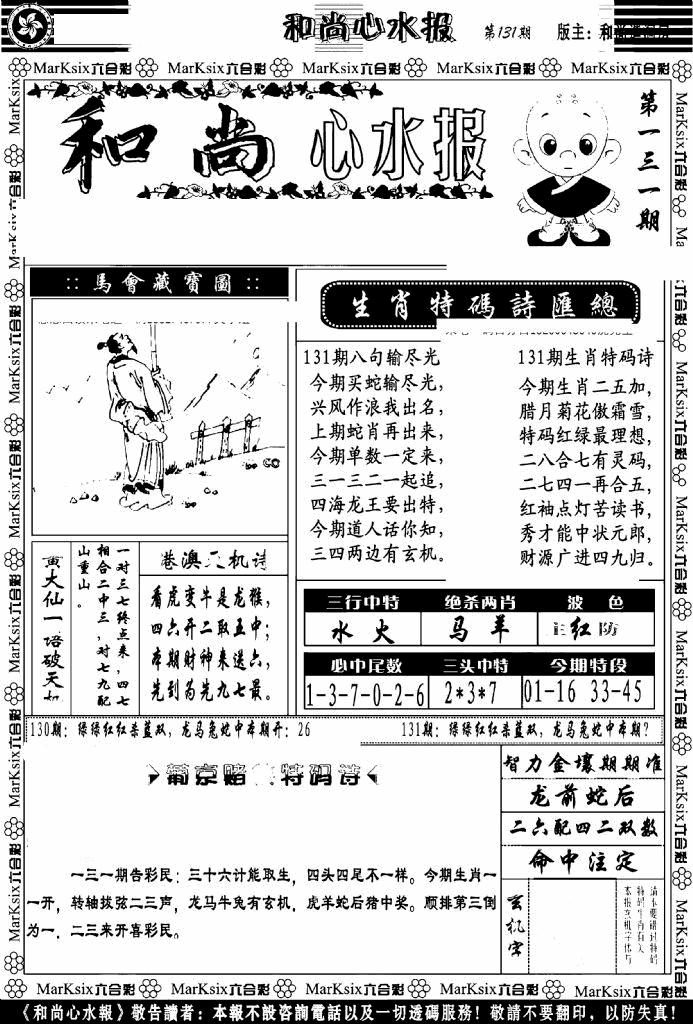 和尚心水报 第131期 版主：和
MarKsix六合彩 MarKsix六合彩 MarKsix六合彩 MarKsix六合彩 MarKsix六合彩
和尚心水报
第一三一期
::馬會藏寶圖::
生肖特碼詩匯總
131期八句输尽光
今期买蛇输尽光，
兴风作浪我出名，
上期蛇肖再出来，
今期单数一定来，
三一三二一起追，
四海龙王要出特，
今期道人话你知，
三四两边有玄机。
131期生肖特码诗
今期生肖二五加，
腊月菊花傲霜雪，
特码红绿最理想，
二八合七有灵码，
二七四一再合五，
红袖点灯苦读书，
秀才能中状元郎，
财源广进四九归。
黄大仙一语破天机
一对三七终点来，四七
相合二中三，对七九配
山重山。
港澳天机诗
看虎变牛是龙猴，
四六开二取五中；
本期财神来送六，
先到为先九七最。
三行中特 绝杀两肖 波 色
水 火 马 羊 红 防
必中尾数 三头中特 今期特段
1-3-7-0-2-6 2*3*7 01-16 33-45
130期：绿绿红红杀蓝双，龙马兔蛇中本期开：26
131期：绿绿红红杀蓝双，龙马兔蛇中本期？
葡京赌 特码诗
一三一期告彩民：三十六计能取生，四头四足不一样。今期生肖一
一开，转轴拔弦二三声，龙马牛兔有玄机，虎羊蛇后猪中奖。顺排第三倒
为一，二三来开喜彩民。
智力金壤期期准
龙前蛇后
二六配四二双数
命中注定
玄机字
MarKsix六合彩 MarKsix六合彩 MarKsix六合彩 MarKsix六合彩 MarKsix六合彩
《和尚心水報》敬告讀者：本報不設咨詢電話以及一切透碼服務！敬請不要翻印，以防失真！